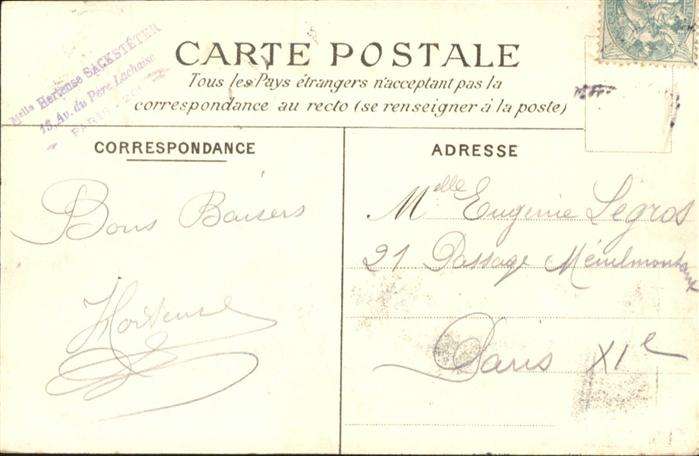 Melle Hortense SACKSTÉTER
15, Av. du Père Lachaise
PARIS
CARTE POSTALE
Tous les Pays étrangers n'acceptent pas la
correspondance au recto (se renseigner à la poste)
CORRESPONDANCE
Bons Baisers
Hortense
ADRESSE
Melle Eugenie Legros
21 Passage Ménilmontant
Paris XIe